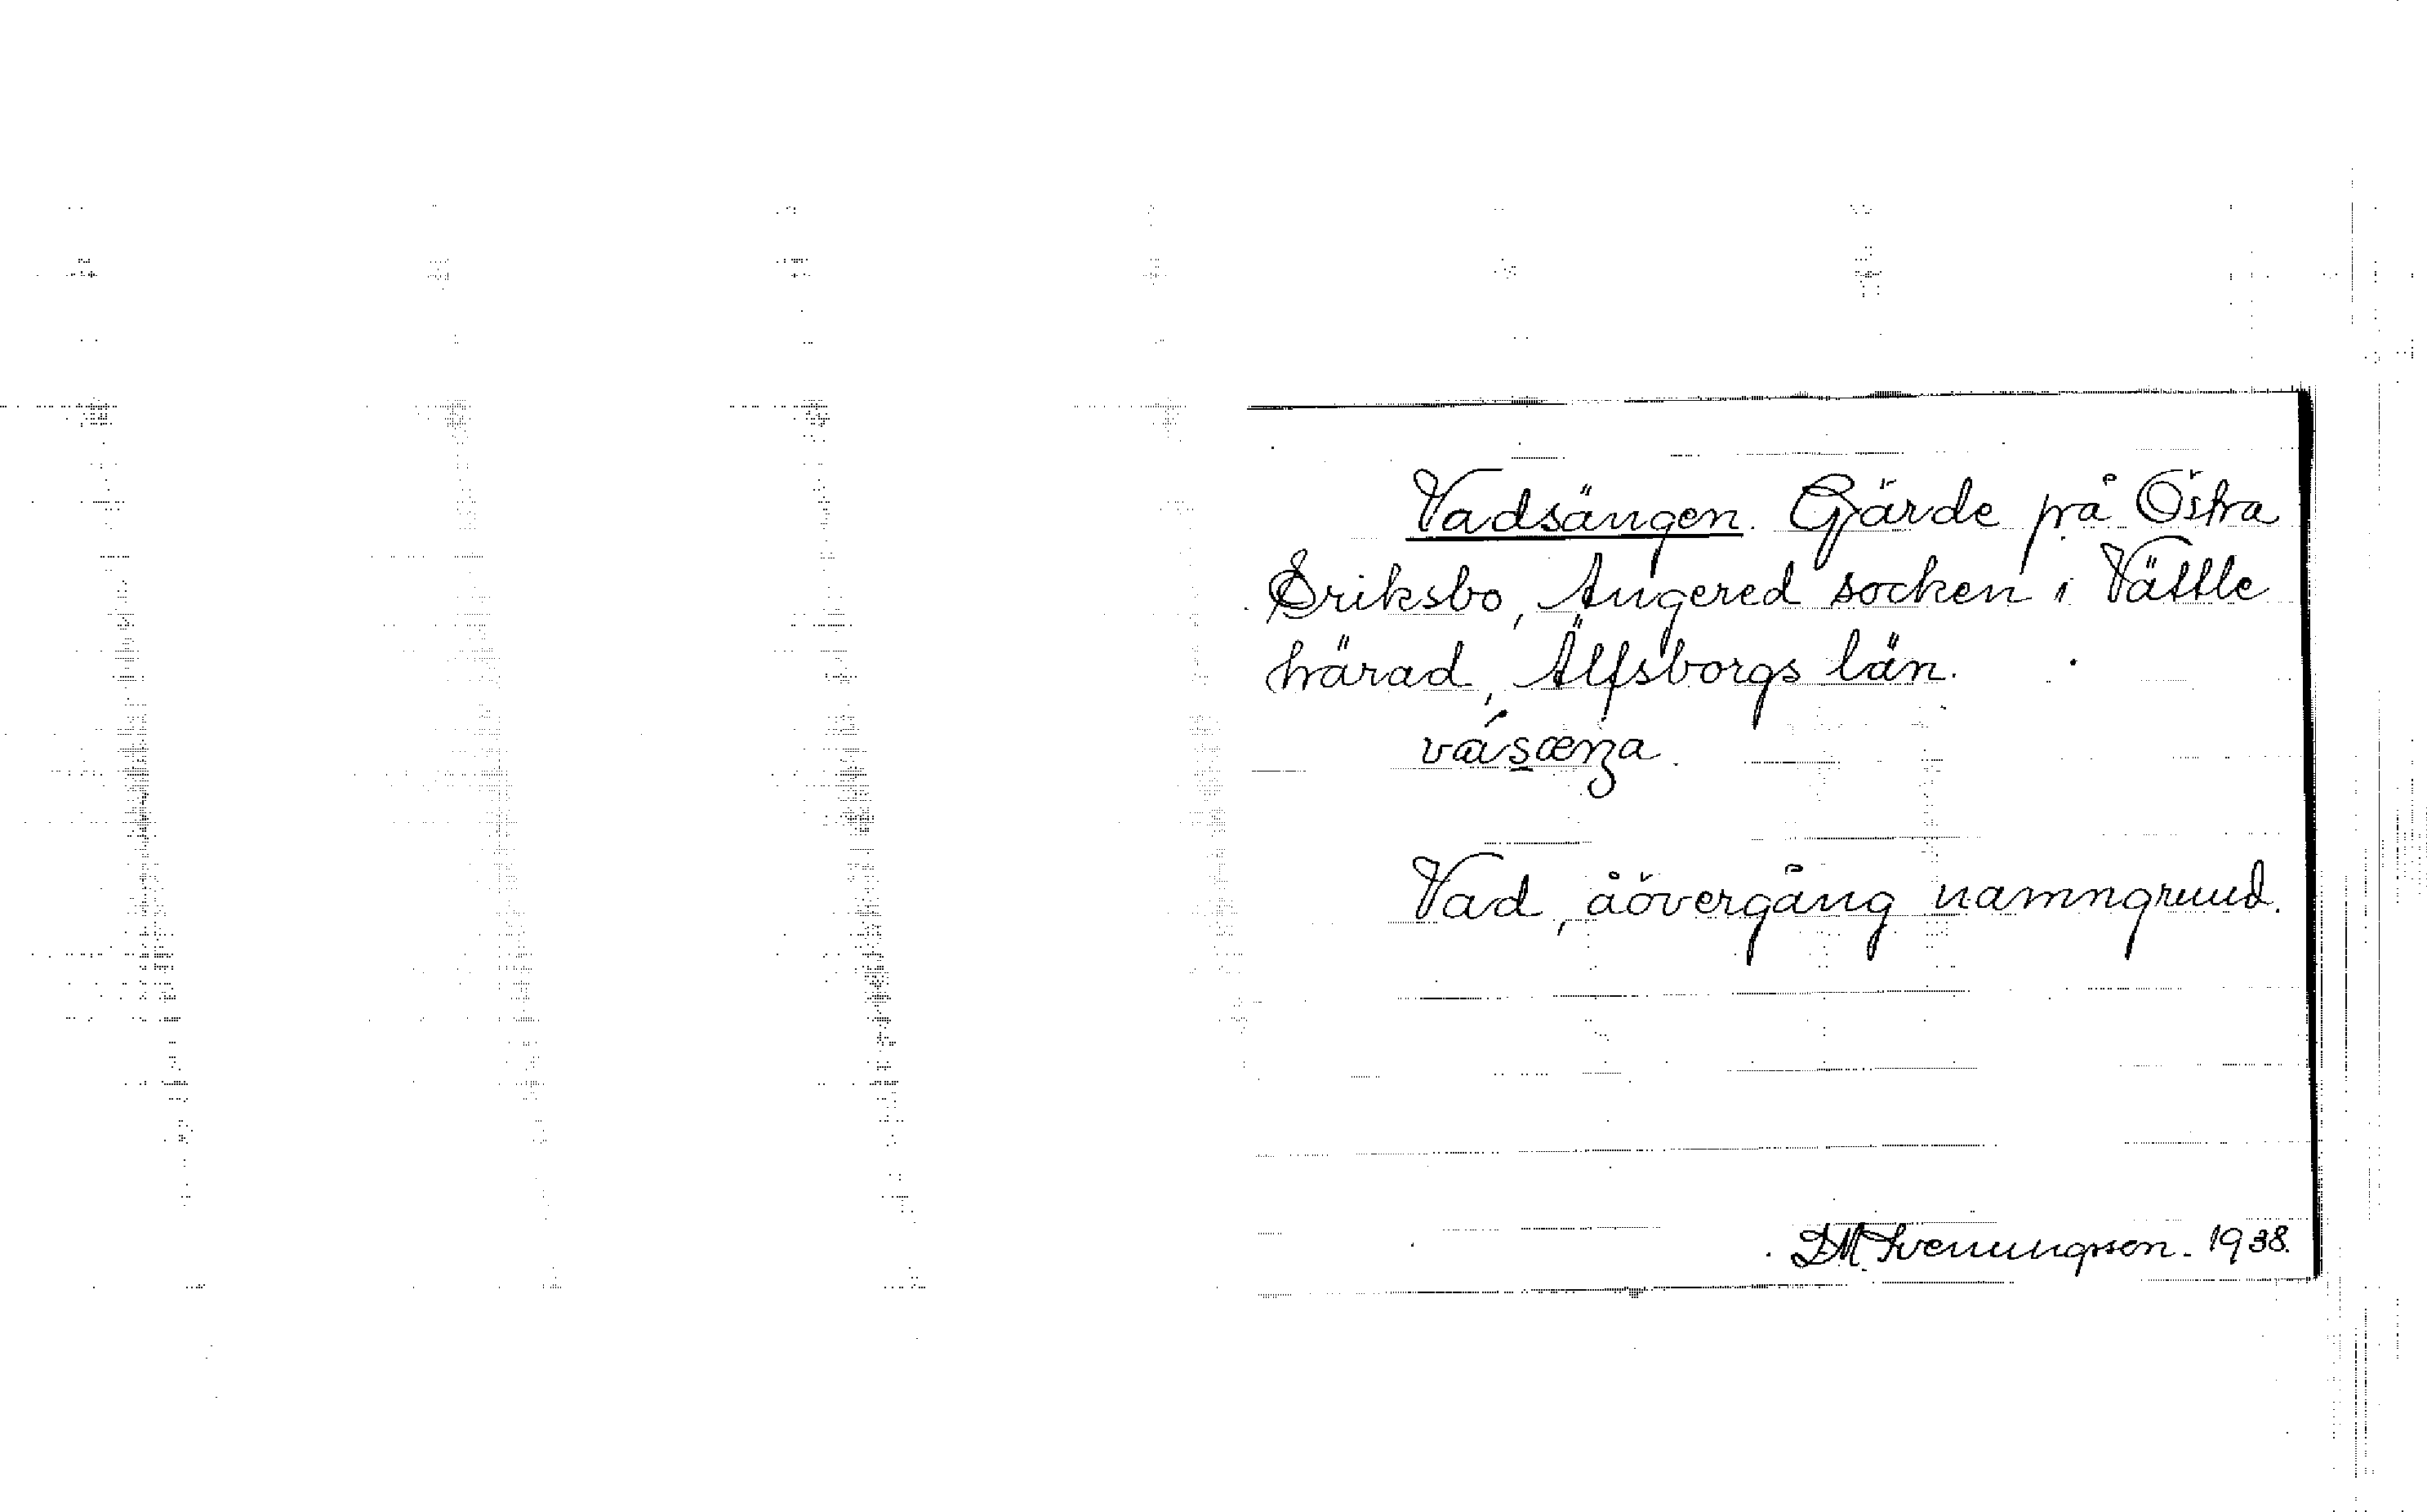 Vadsängen. Gärde på Östra
Eriksbo, Angered socken i Vättle
härad, Älfsborgs län.
Vad, åövergång namngrund.
Svenungsson. 1938.